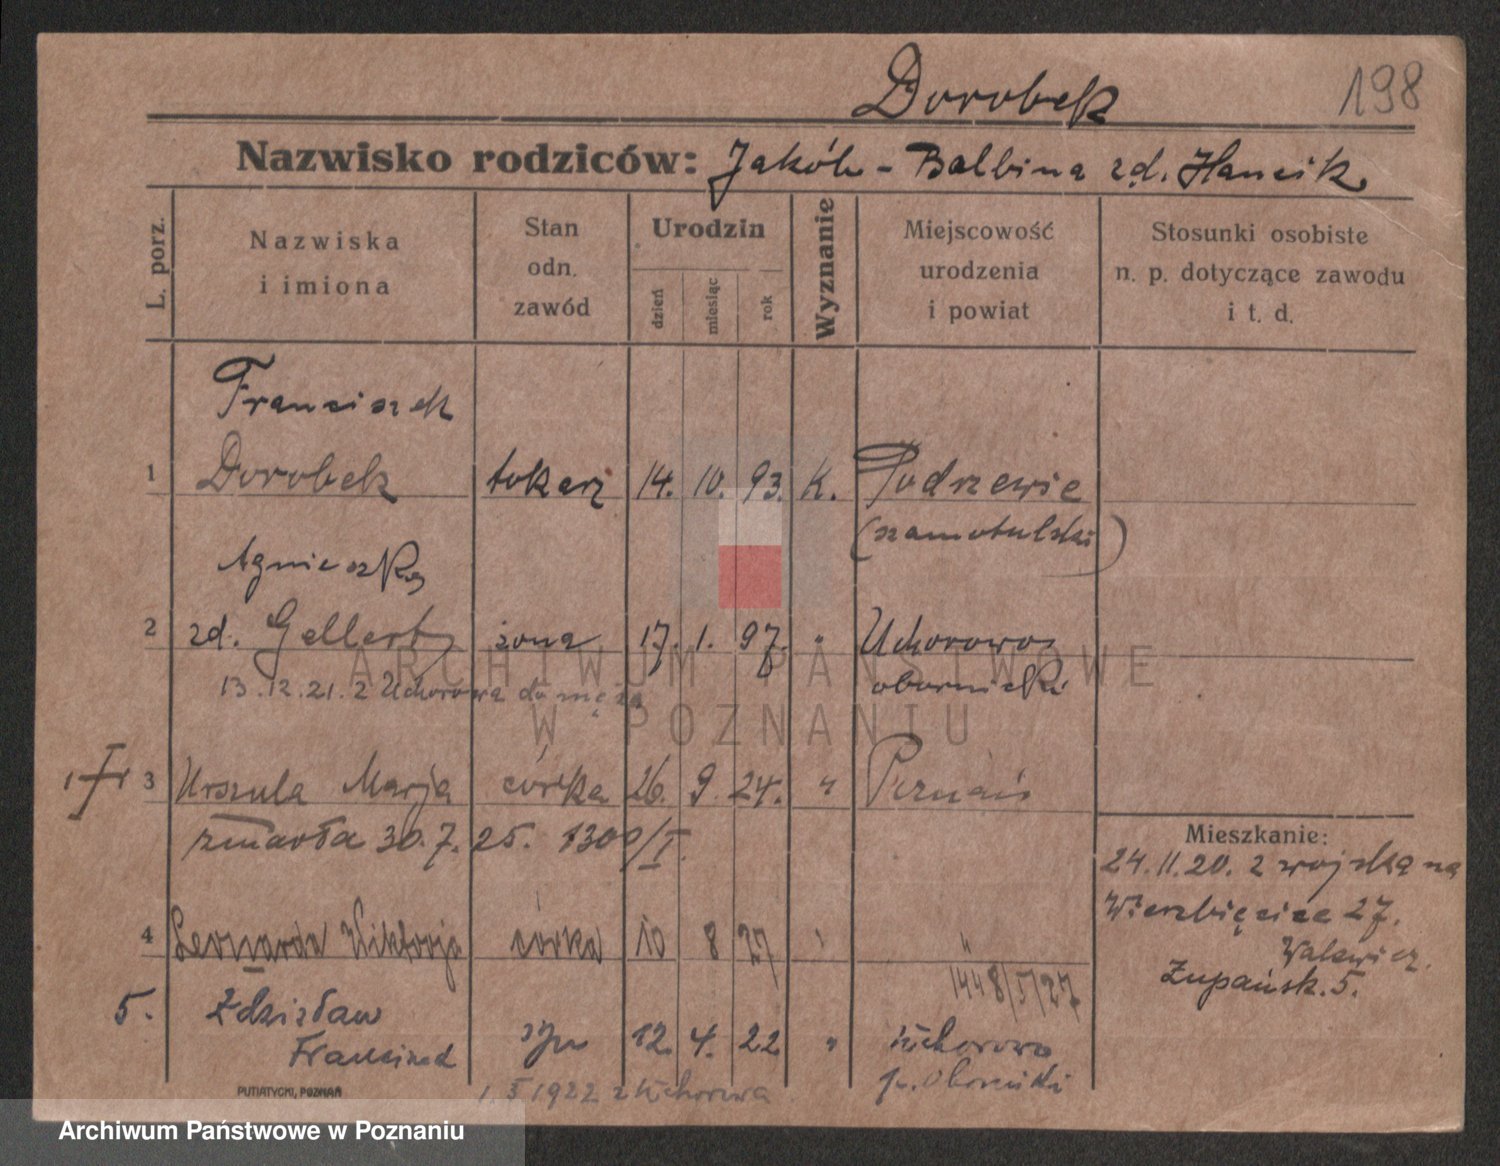 Dorobek
198
Nazwisko rodziców: Jakób - Balbina zd. Hancik.
L. porz.
Nazwiska
i imiona
Stan
odn.
zawód
Urodzin
dzień
miesiąc
rok
Wyznanie
Miejscowość
urodzenia
i powiat
Stosunki osobiste
n. p. dotyczące zawodu
i t. d.
Franciszek
1 Dorobek tokarz 14. 10. 93. K. Podrzewie
(szamotulski)
Agnieszka
2 zd. Gellert żona 17. 1. 97. " Uchorowo
13.12.21. z Uchorowa do męża obornicki
3 Urszula Marja córka 26. 9. 24. " Poznań
zmarła 30.7.25. 1300/I.
Mieszkanie:
24.11.20. z wojska na
Wierzbięcice 27.
Walewicz.
Żupańsk. 5.
4 Leonarda Wiktorja córka 10 8 27 " "
1448/5/27
5. Zdzisław
Franciszek syn 12. 4. 22 " Uchorowo
p. Oborniki
1. X 1922 z Uchorowa
PUTIATYCKI, POZNAŃ
ARCHIWUM PAŃSTWOWE
W POZNANIU
Archiwum Państwowe w Poznaniu